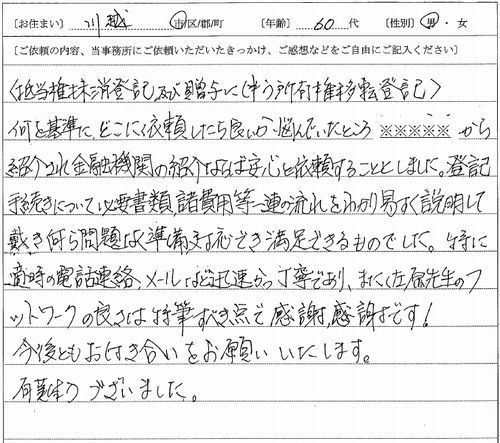 ［お住まい］ 川越 市/区/郡/町 ［年齢］ 60 代 ［性別］ 男・女
［ご依頼の内容、当事務所にご依頼いただいたきっかけ、ご感想などをご自由にご記入ください］
〈抵当権抹消登記及び贈与に伴う所有権移転登記〉
何を基準に、どこに依頼したら良いか悩んでいたところ ※※※※※ から
紹介され金融機関の紹介ならば安心と依頼することとしました。登記
手続きについて必要書類、諸費用等一連の流れをわかり易く説明して
戴き何ら問題なく準備、対応でき満足できるものでした。特に
適時の電話連絡、メールなど迅速かつ丁寧であり、また佐原先生のフ
ットワークの良さは特筆すべき点で感謝、感謝です！
今後ともお付き合いをお願いいたします。
有難うございました。